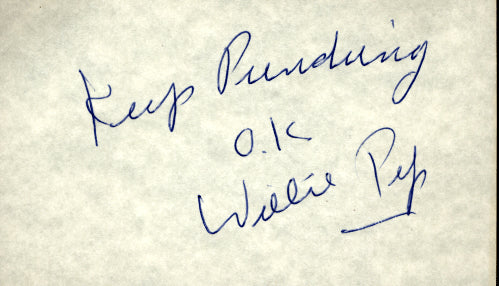 Keep Punching
O.K
Willie Pep